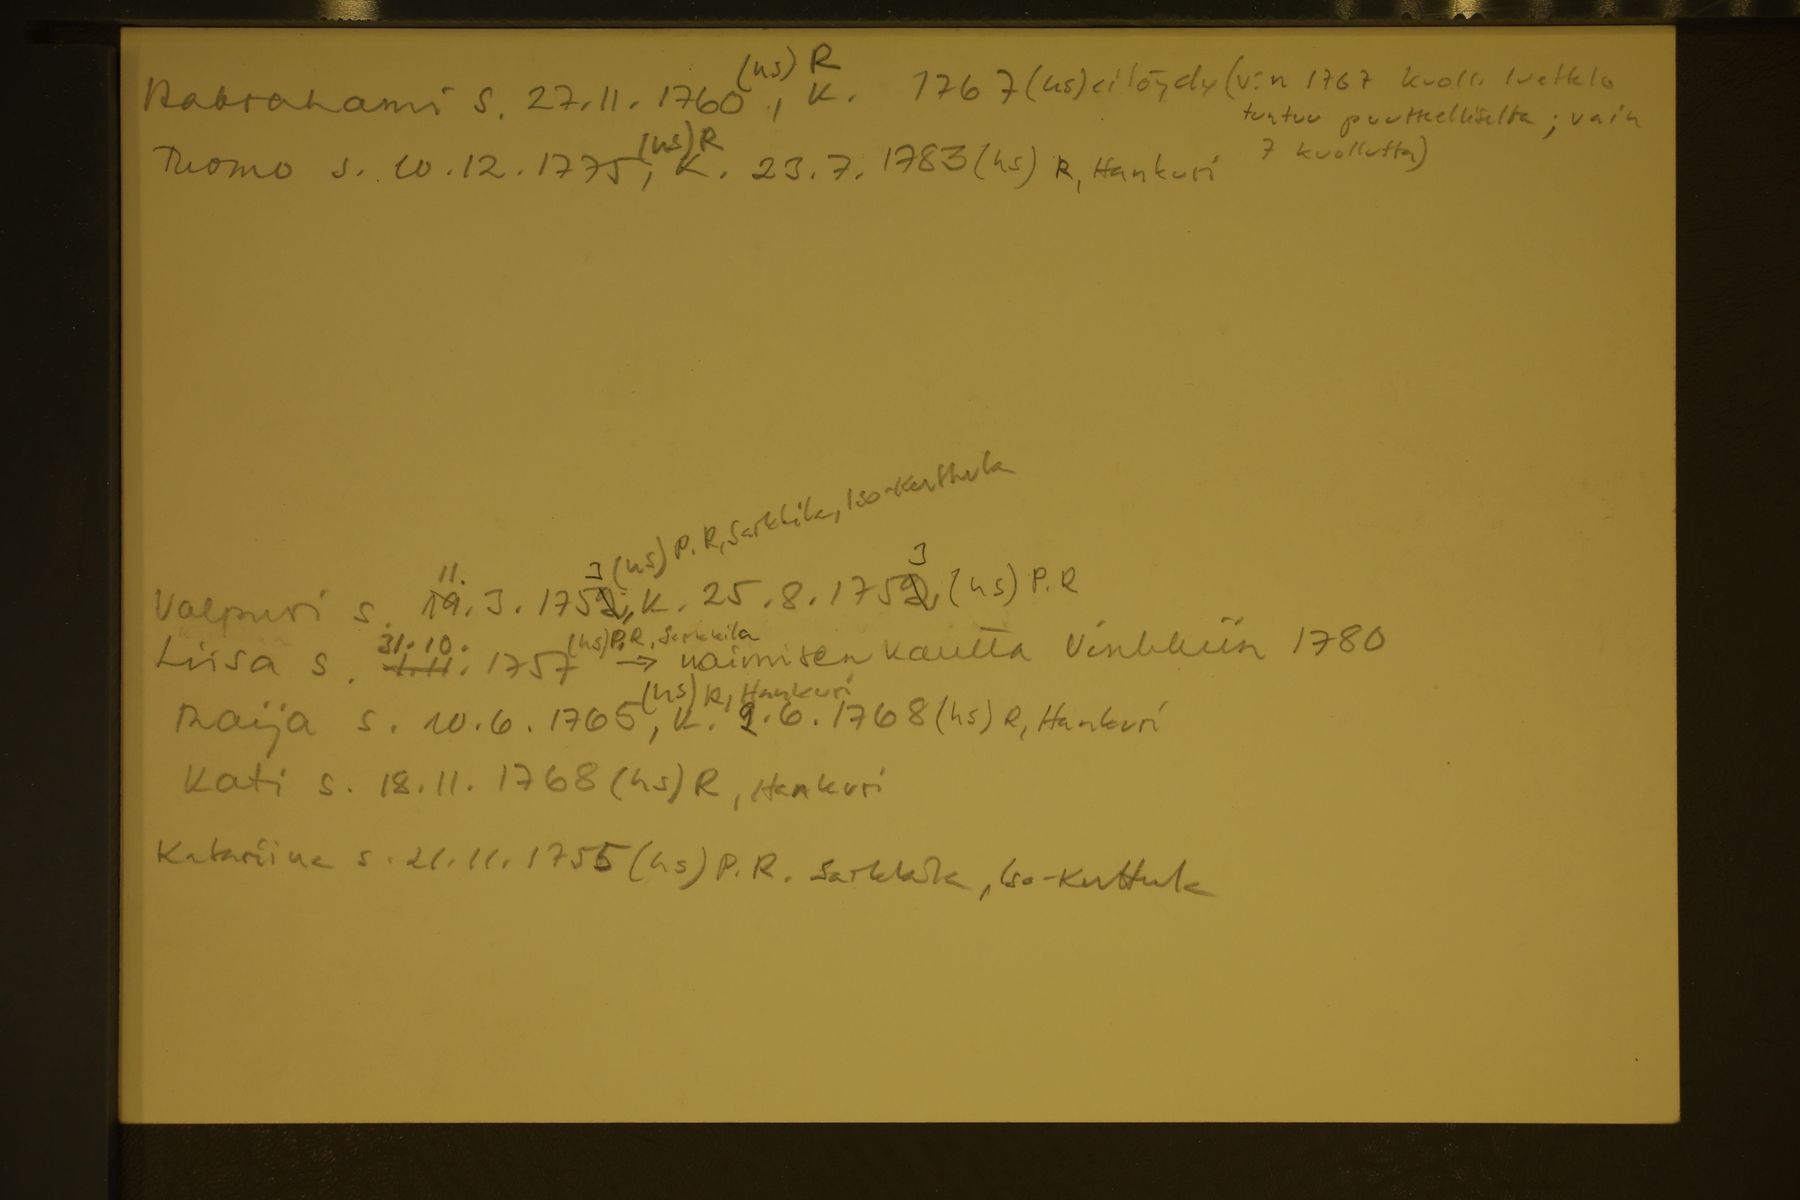 Aabrahami s. 27.11.1760 (hs) R, k. 1767 (hs) ei löydy (v:n 1767 kuoll. luettelo
tuntuu puutteelliselta; vain
7 kuollutta)
Tuomo s. 10.12.1775 (hs) R, k. 23.7.1783 (hs) R, Hankuri
(hs) P.R, Särkkilä, Iso-Kerttula
11. 3 3
Valpuri s. 19.3.1752, k. 25.8.1752, (hs) P.R
31.10. (hs) P.R, Särkkilä
Liisa s. 1.11.1757 → naimisen kautta Vinkkiin 1780
(hs) R, Hankuri
Maija s. 10.6.1765, k. 9.6.1768 (hs) R, Hankuri
Kati s. 18.11.1768 (hs) R, Hankuri
Katariina s. 21.11.1755 (hs) P.R. Särkkilä, Iso-Kerttula